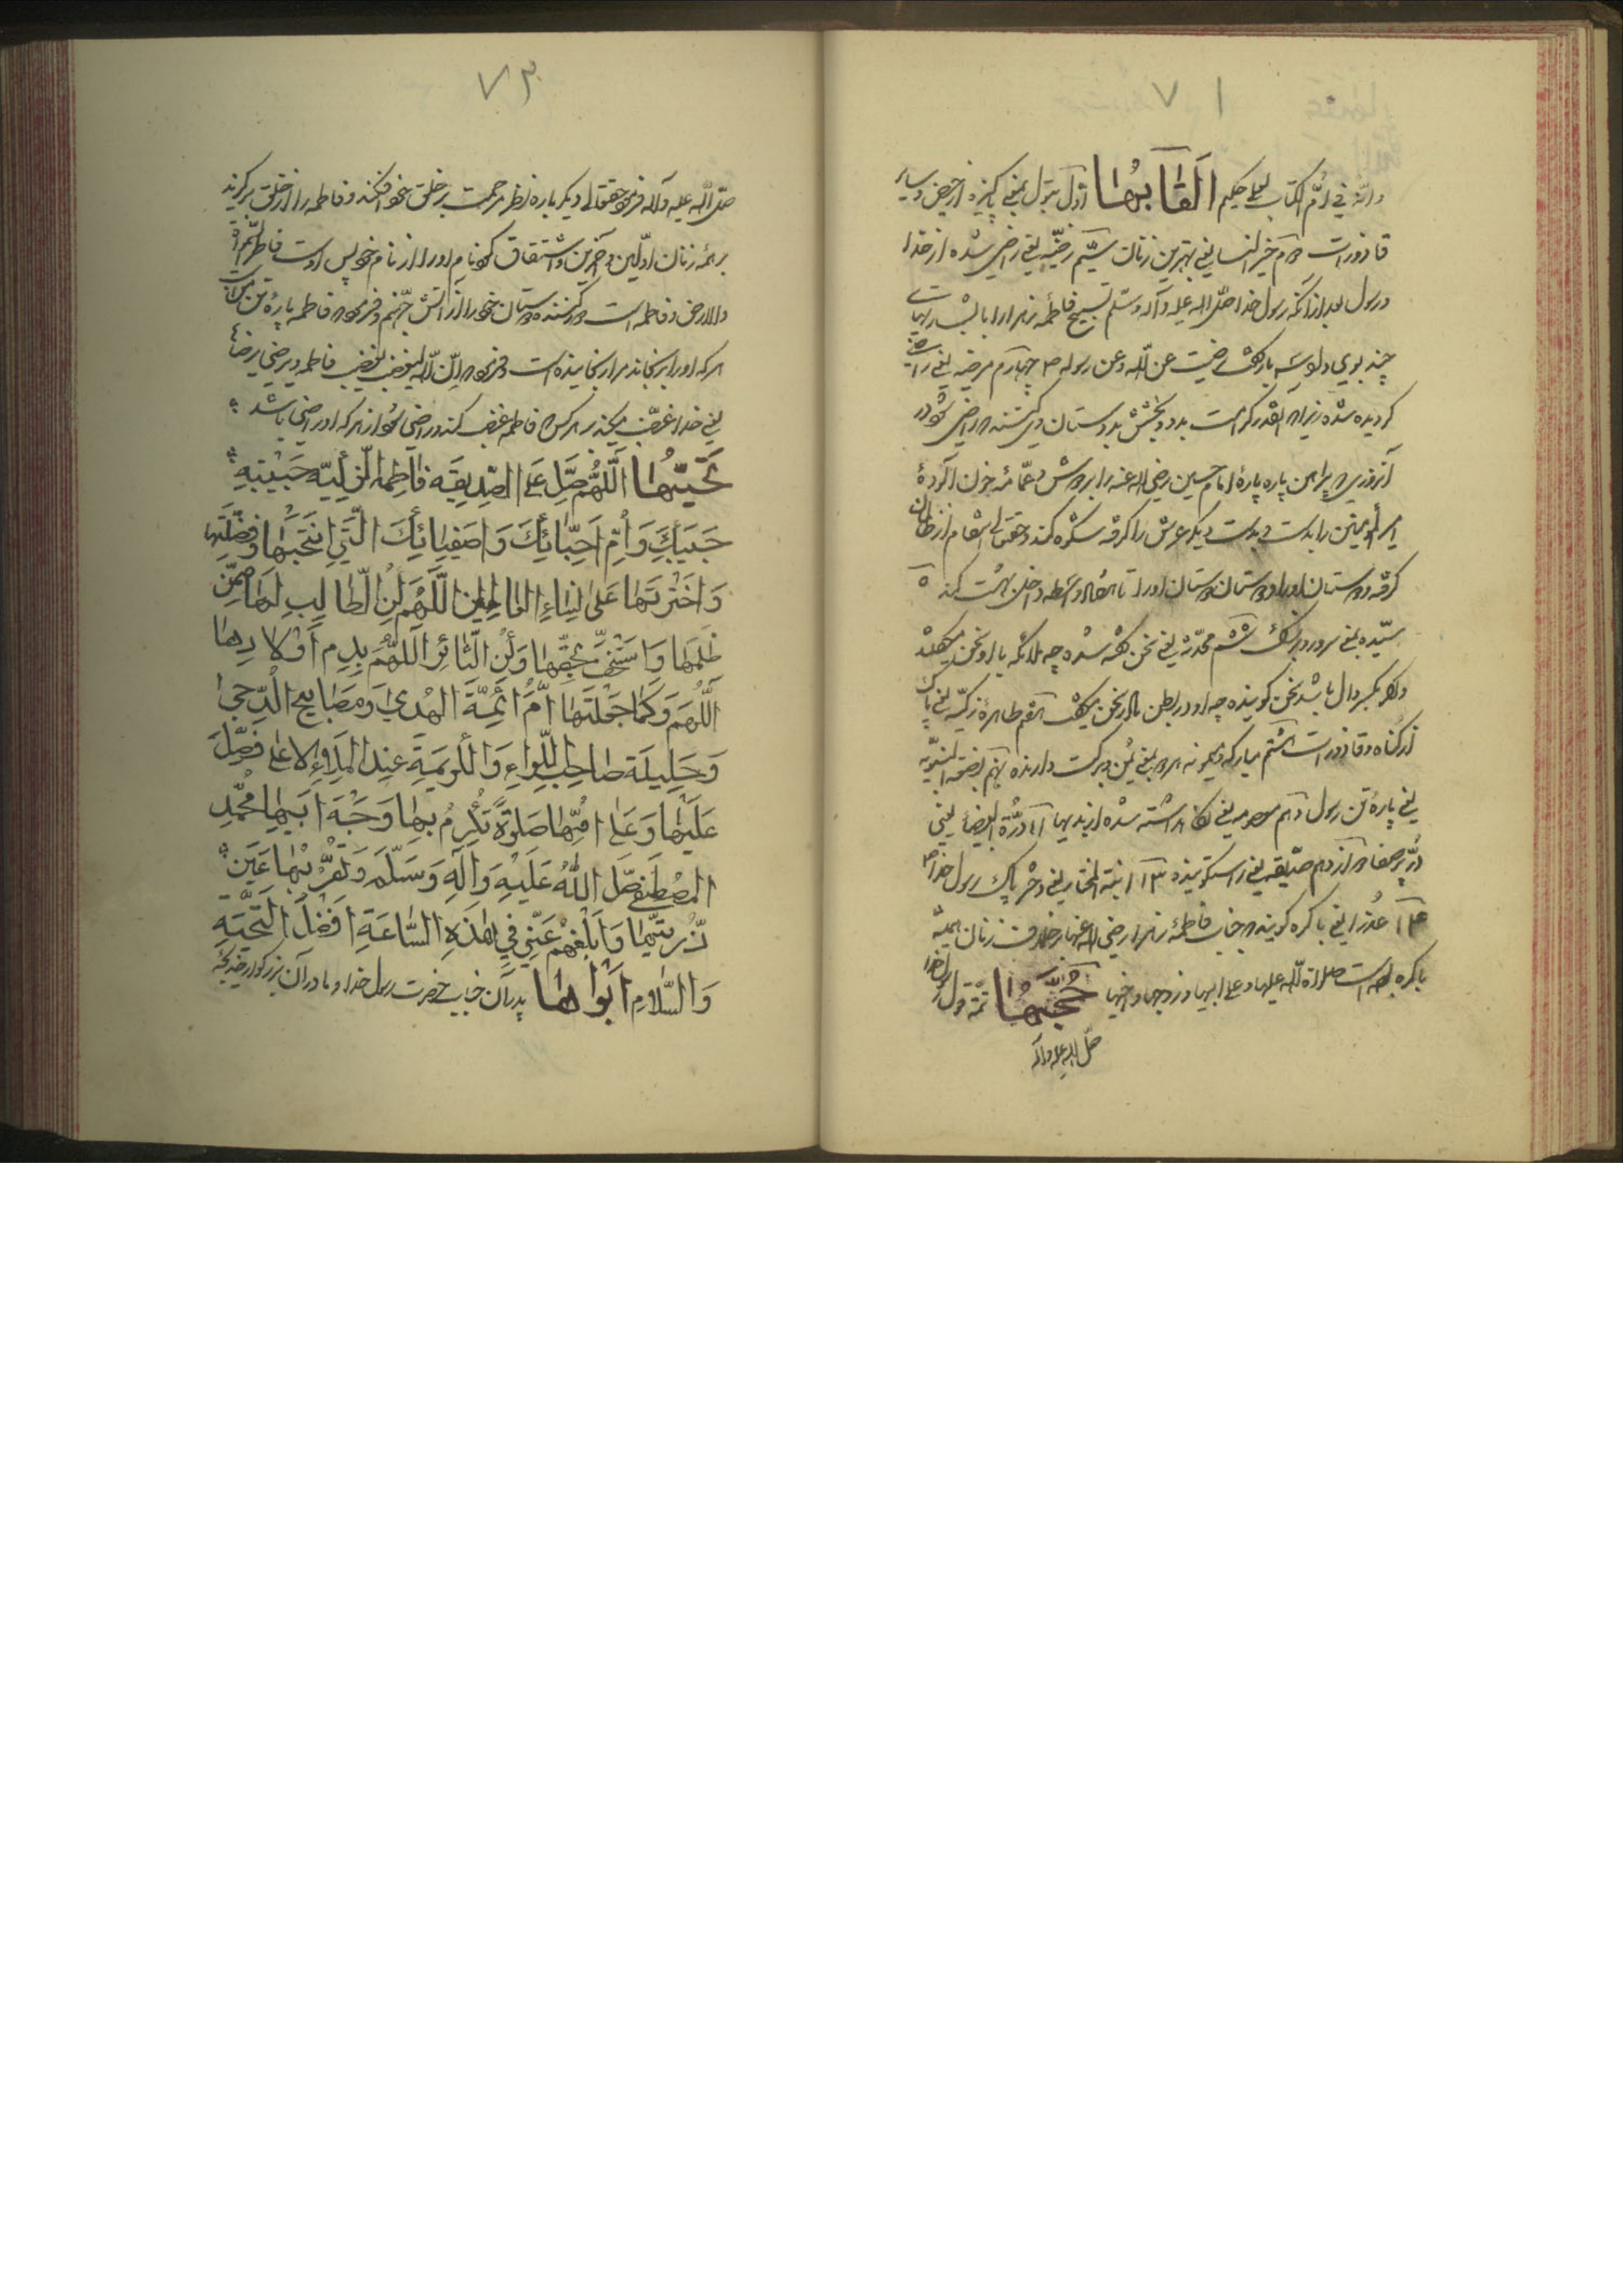 ۷۱
وانّه فی امّ الکتاب لعلی حکیم القابها اوّل بتول یعنی پاکیزه از حیض و سایر
قاذورات دویم خیر النسا یعنی بهترین زنان سیّم رضیّه یعنی راضی شده از خدا
و رسول بعد از آنکه رسول خدا صلّی الله علیه و آله وسلم تسبیح فاطمه زهرا را با
چند بوی رضیت عن الله وعن رسوله چهارم مرضیه یعنی راضی
گردیده شده زیرا که آنقدر کرامت بدو و بخشش بدوستان وی راضی شود در
آنروزی که پیراهن پاره پارهٔ امام حسین رضی الله عنه را بر دوش و عمّامه خون آلودهٔ
امیر المؤمنین را بدست و بدست دیگر عرش را گرفته شکوه کند و حقتعالی انتقام از ظالمان
گرفته دوستان او را و دوستان دوستان او را تا هفتاد واسطه داخل بهشت کند ۵
سیّده یعنی سرور و بزرگ ششم محدّثه یعنی سخن گفته شده چه ملائکه با او سخن میگفتند
و اگر بکسر دال باشد سخن گوینده چه او در بطن مادر سخن میگفت هفتم طاهره زکیّه یعنی پاک
از گناه و قاذورات هشتم مبارکه میمونه هر دو یعنی یُمن و برکت دارنده نهم بضعة النبویّه
یعنی پارهٔ تن رسول دهم معصومه یعنی نگاه داشته شده از بدیها ۱۱ درّة البیضاء یعنی
دُرّ پر صفا دوازدهم صدّیقه یعنی راستگوینده ۱۳ ابنة المختار یعنی دختر پاک رسول خدا
۱۴ عذرا یعنی باکره گویند که جناب فاطمه زهرا رضی الله عنها بر خلاف زنان همیشه
باکره بوده است صلواة الله علیها و علی ابیها و زوجها و ابنیها حُجَّتِهٰا تتمّه قول رسول خدا
صلّی الله علیه و آله
۷۳
صلّی الله علیه و آله فرمود حقتعالی دیگر باره نظر رحمت بر خلق خود افکند و فاطمه را از خلق برگزید
بر همهٔ زنان اوّلین و آخرین و اشتقاق کرد نام او را از نام خویش اوست فاطر السّموات
والارض و فاطمه است دور کننده دوستان خود را از آتش جهنّم و فرمود که فاطمه پارهٔ تن من است
هر که او را برنجاند مرا رنجانیده است و فرمود که انّ الله لیغضب لغضب فاطمه ویرضی لرضاء
یعنی خدا غضب میکند بر هر کس که فاطمه غضب کند و راضی شود از هر که او راضی باشد
تَحیّتُهٰا اَللّٰهُمَّ صَلِّ عَلَی الصِّدِیقَةِ فٰاطِمَةَ الزَّکِیَّةِ حَبیبَةِ
حَبیبِکَ وَاُمِّ اَحِبّٰائِکَ وَاَصفِیٰائِکَ الَّتی اِنْتَجَبْتَهٰا وَفَضَّلْتَهٰا
وَاخْتَرْتَهٰا عَلیٰ نِسٰاءِ العٰالَمِینَ اَللّٰهُمَّ کُنِ الطّٰالِبَ لَهٰا مِمَّنْ
ظَلَمَهٰا وَاسْتَخَفَّ بِحَقِّهٰا وَکُنِ الثّٰائِرَ اَللّٰهُمَّ بِدَمِ اَوْلادِهٰا
اَللّٰهُمَّ وَکَمٰا جَعَلْتَهٰا اُمَّ اَئِمَّةِ الْهُدیٰ وَمَصٰابیحَ الدُّجیٰ
وَحَلِیلَةَ صٰاحِبِ اللِّوٰاءِ وَالْکَرِیمَةَ عِنْدَ الْمَلَاءِ الاَعْلیٰ فَصَلِّ
عَلَیْهٰا وَعَلیٰ اُمِّهٰا صَلوٰةً تُکْرِمُ بِهٰا وَجْهَ اَبیهٰا مُحَمَّدٍ
المُصْطَفیٰ صَلَّی اللّٰهُ عَلَیْهِ وَاٰلِهِ وَسَلَّمَ وَتُقِرُّ بِهٰا عَیْنَ
ذُرِّیَّتِهٰا وَاَبْلِغْهُمْ عَنّی فی هٰذِهِ السّٰاعَةِ اَفْضَلَ التَّحِیَّةِ
وَالسَّلٰامِ اَبَوٰاهٰا پدر آن جناب حضرت رسول خدا و مادر آن بزرگوار خدیجه